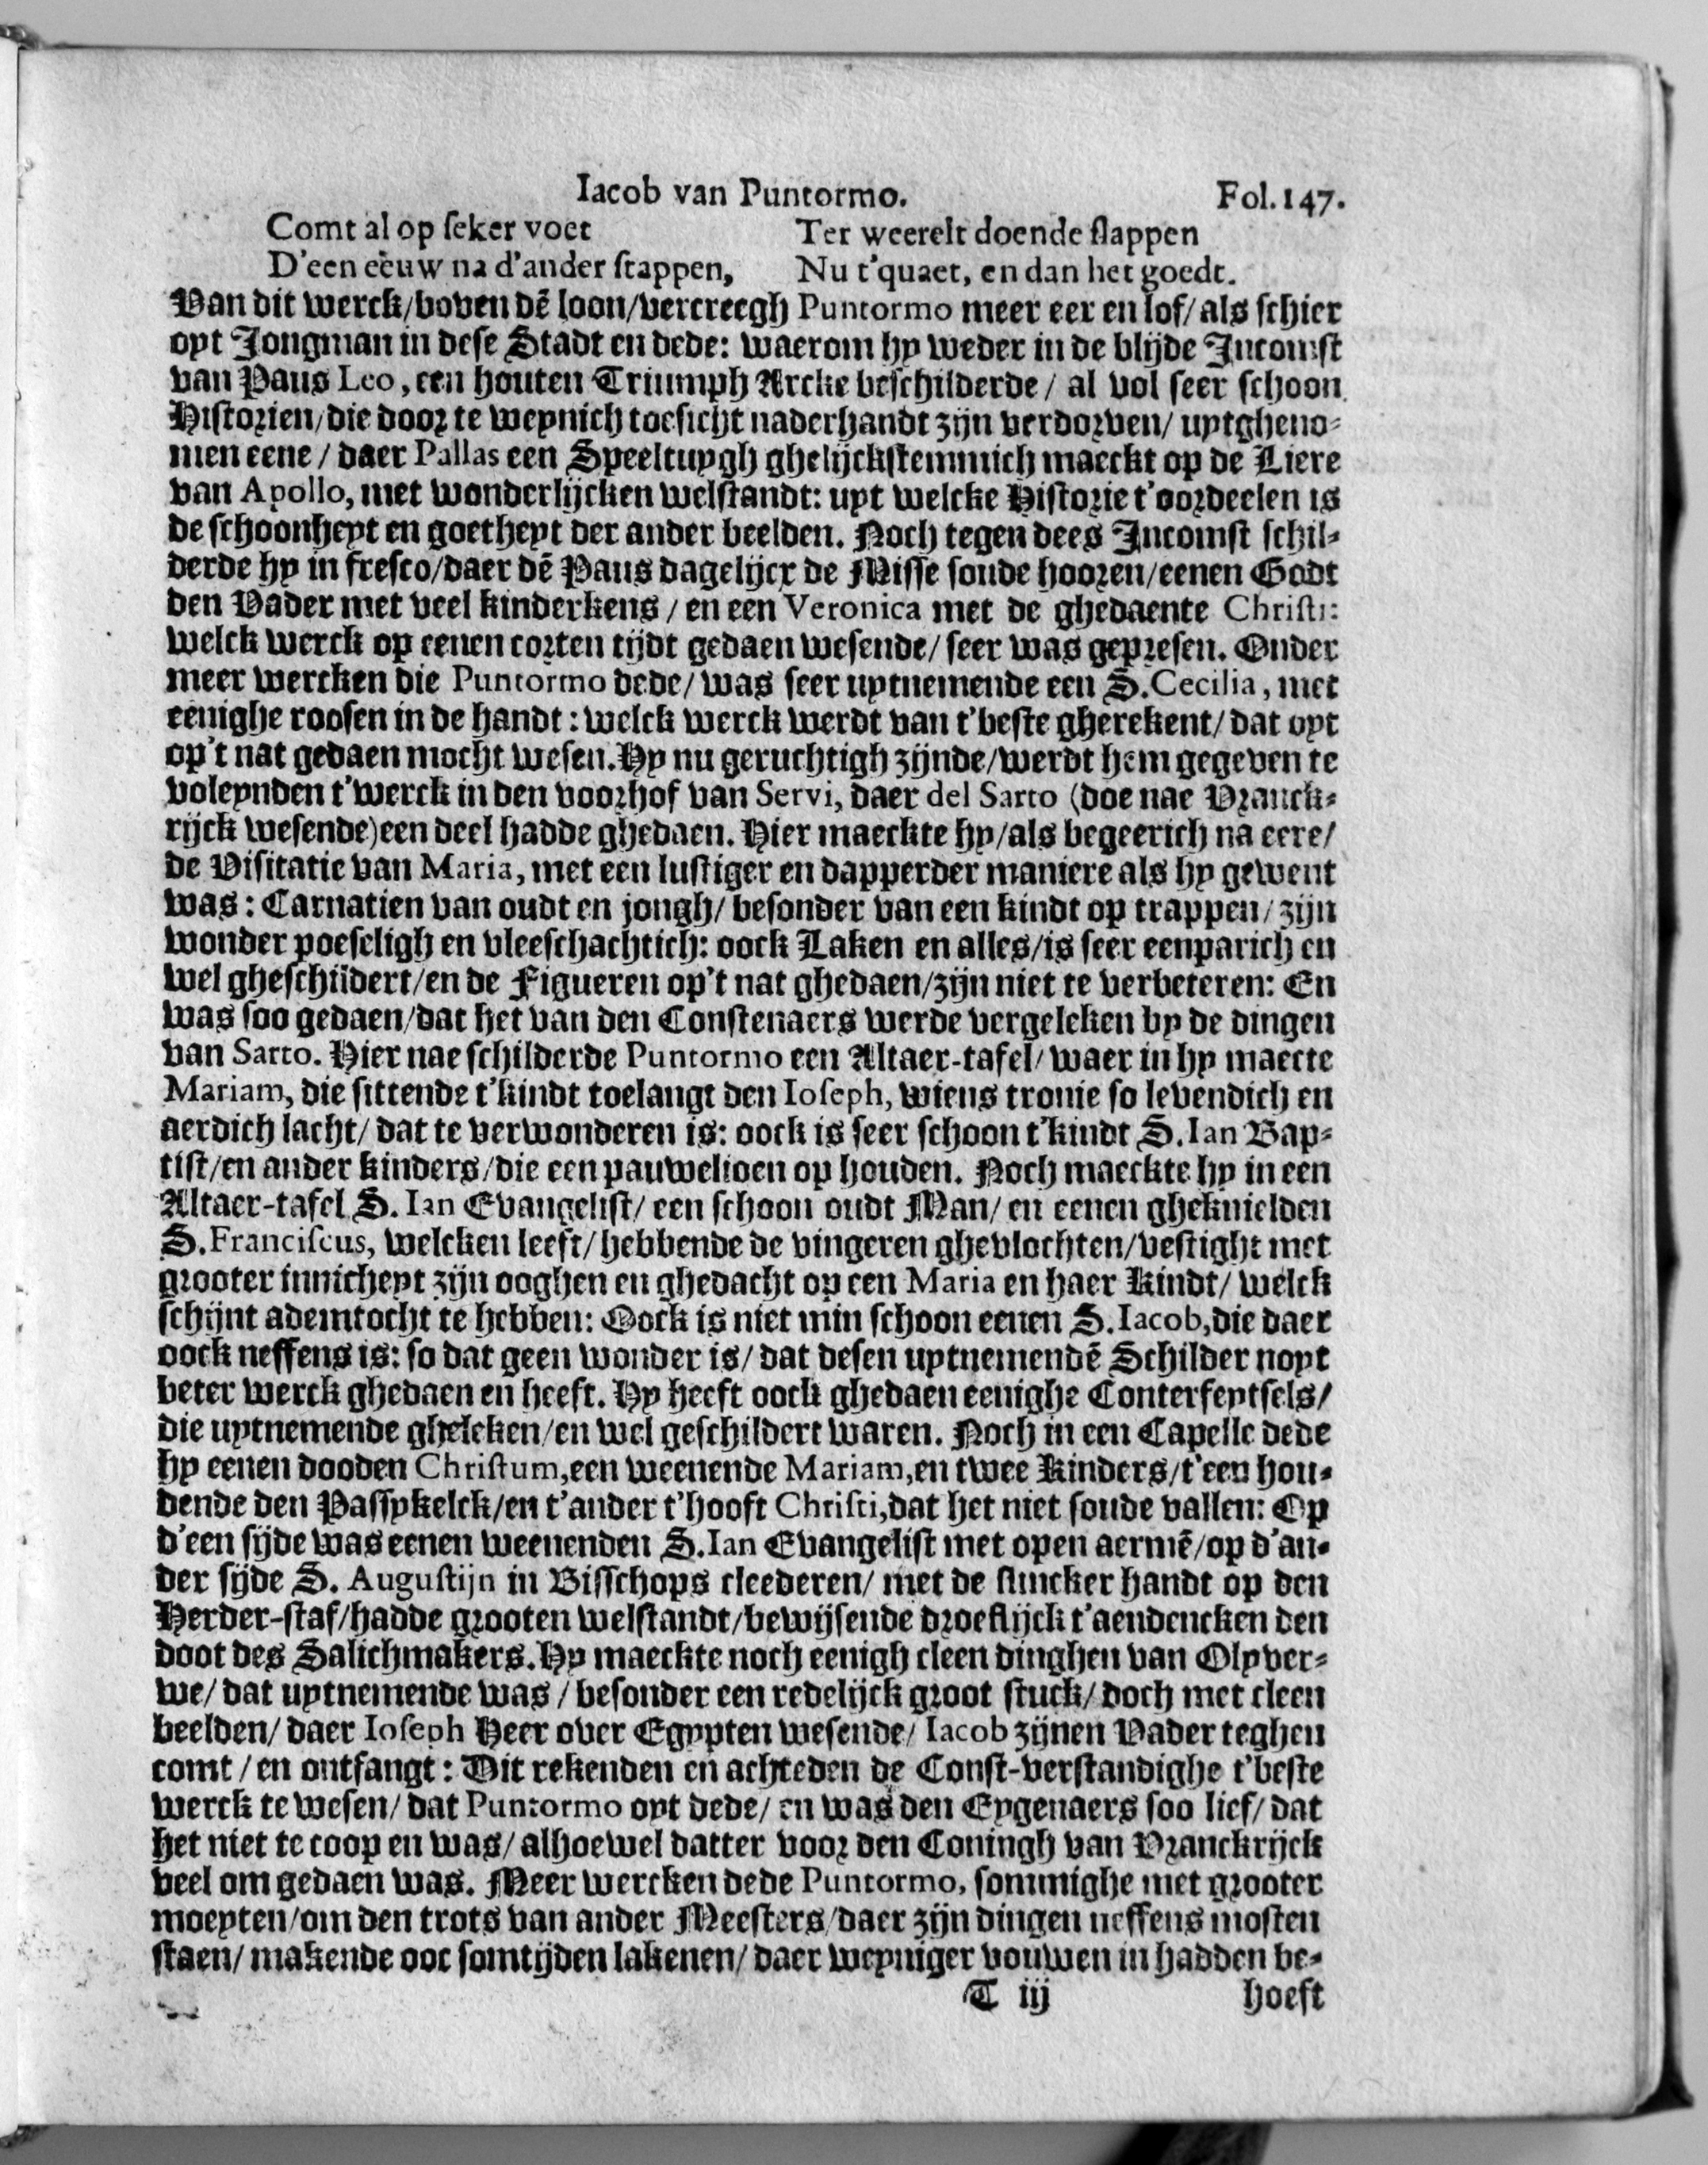 Iacob van Puntormo. Fol. 147.
Comt al op seker voet Ter weerelt doende slappen
D'een eeuw na d'ander stappen, Nu t'quaet, en dan het goedt.
Van dit werck/boven dē loon/vercreegh Puntormo meer eer en lof/als schier
oyt Jongman in dese Stadt en dede: waerom hy weder in de blijde Incomst
van Paus Leo, een houten Triumph Arcke beschilderde/ al vol seer schoon
Historien/die door te weynich toesicht naderhandt zijn verdorven/ uytgheno-
men eene/ daer Pallas een Speeltuygh ghelijckstemmich maeckt op de Liere
van Apollo, met wonderlijcken welstandt: uyt welcke Historie t'oordeelen is
de schoonheyt en goetheyt der ander beelden. Noch tegen dees Incomst schil-
derde hy in fresco/daer dē Paus dagelijcx de Misse soude hooren/eenen Godt
den Vader met veel kinderkens/ en een Veronica met de ghedaente Christi:
welck werck op eenen corten tijdt gedaen wesende/ seer was gepresen. Onder
meer wercken die Puntormo dede/ was seer uytnemende een S. Cecilia, met
eenighe roosen in de handt: welck werck werdt van t'beste gherekent/ dat oyt
op't nat gedaen mocht wesen. Hy nu geruchtigh zijnde/werdt hem gegeven te
voleynden t'werck in den voorhof van Servi, daer del Sarto (doe nae Vranck-
rijck wesende) een deel hadde ghedaen. Hier maeckte hy/als begeerich na eere/
de Visitatie van Maria, met een lustiger en dapperder maniere als hy gewent
was: Carnatien van oudt en jongh/ besonder van een kindt op trappen/ zijn
wonder poeseligh en vleeschachtich: oock Laken en alles/is seer eenparich en
wel gheschildert/en de Figueren op't nat ghedaen/zijn niet te verbeteren: En
was soo gedaen/dat het van den Constenaers werde vergeleken by de dingen
van Sarto. Hier nae schilderde Puntormo een Altaer-tafel/ waer in hy maecte
Mariam, die sittende t'kindt toelangt den Ioseph, wiens tronie so levendich en
aerdich lacht/ dat te verwonderen is: oock is seer schoon t'kindt S. Ian Bap-
tist/en ander kinders/die een pauwelioen op houden. Noch maeckte hy in een
Altaer-tafel S. Ian Evangelist/ een schoon oudt Man/ en eenen gheknielden
S. Franciscus, welcken leeft/hebbende de vingeren ghevlochten/vestight met
grooter innicheyt zijn ooghen en ghedacht op een Maria en haer Kindt/ welck
schijnt ademtocht te hebben: Oock is niet min schoon eenen S. Iacob, die daer
oock neffens is: so dat geen wonder is/ dat desen uytnemendē Schilder noyt
beter werck ghedaen en heeft. Hy heeft oock ghedaen eenighe Conterfeytsels/
die uytnemende gheleken/en wel geschildert waren. Noch in een Capelle dede
hy eenen dooden Christum, een weenende Mariam, en twee Kinders/t'een hou-
dende den Passykelck/en t'ander t'hooft Christi, dat het niet soude vallen: Op
d'een sijde was eenen weenenden S. Ian Evangelist met open aermē/op d'an-
der sijde S. Augustijn in Bisschops cleederen/ met de slincker handt op den
Herder-staf/hadde grooten welstandt/bewijsende droeflijck t'aendencken den
doot des Salichmakers. Hy maeckte noch eenigh cleen dinghen van Olyver-
we/ dat uytnemende was/ besonder een redelijck groot stuck/ doch met cleen
beelden/ daer Ioseph Heer over Egypten wesende/ Iacob zijnen Vader teghen
comt/ en ontfangt: Dit rekenden en achteden de Const-verstandighe t'beste
werck te wesen/ dat Puntormo oyt dede/ en was den Eygenaers soo lief/ dat
het niet te coop en was/ alhoewel datter voor den Coningh van Vranckrijck
veel om gedaen was. Meer wercken dede Puntormo, sommighe met grooter
moeyten/om den trots van ander Meesters/daer zijn dingen neffens mosten
staen/ makende ooc somtijden lakenen/ daer weyniger vouwen in hadden be-
T iij hoeft